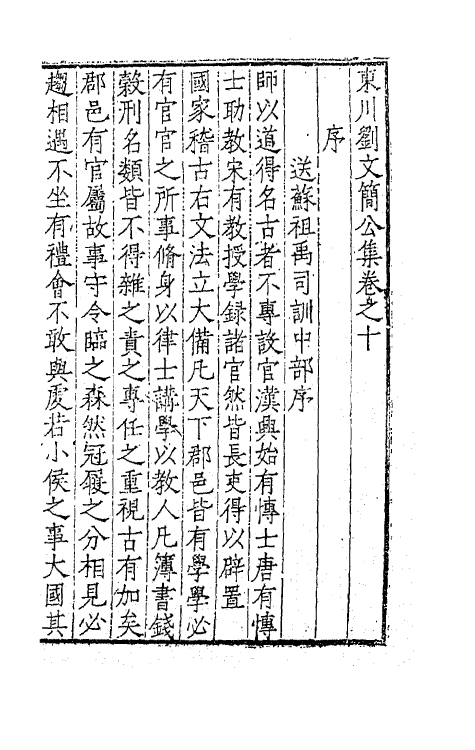 東川劉文簡公集卷之十
序
送蘇祖禹司訓中部序
師以道得名古者不專設官漢興始有博士唐有博
士助教宋有教授學録諸官然皆長吏得以辟置
國家稽古右文法立大備凡天下郡邑皆有學學必
有官官之所事脩身以律士講學以教人凡簿書錢
穀刑名類皆不得雜之責之專任之重視古有加矣
郡邑有官屬故事守令臨之森然冠履之分相見必
趨相遇不坐有禮會不敢與處若小侯之事大國其